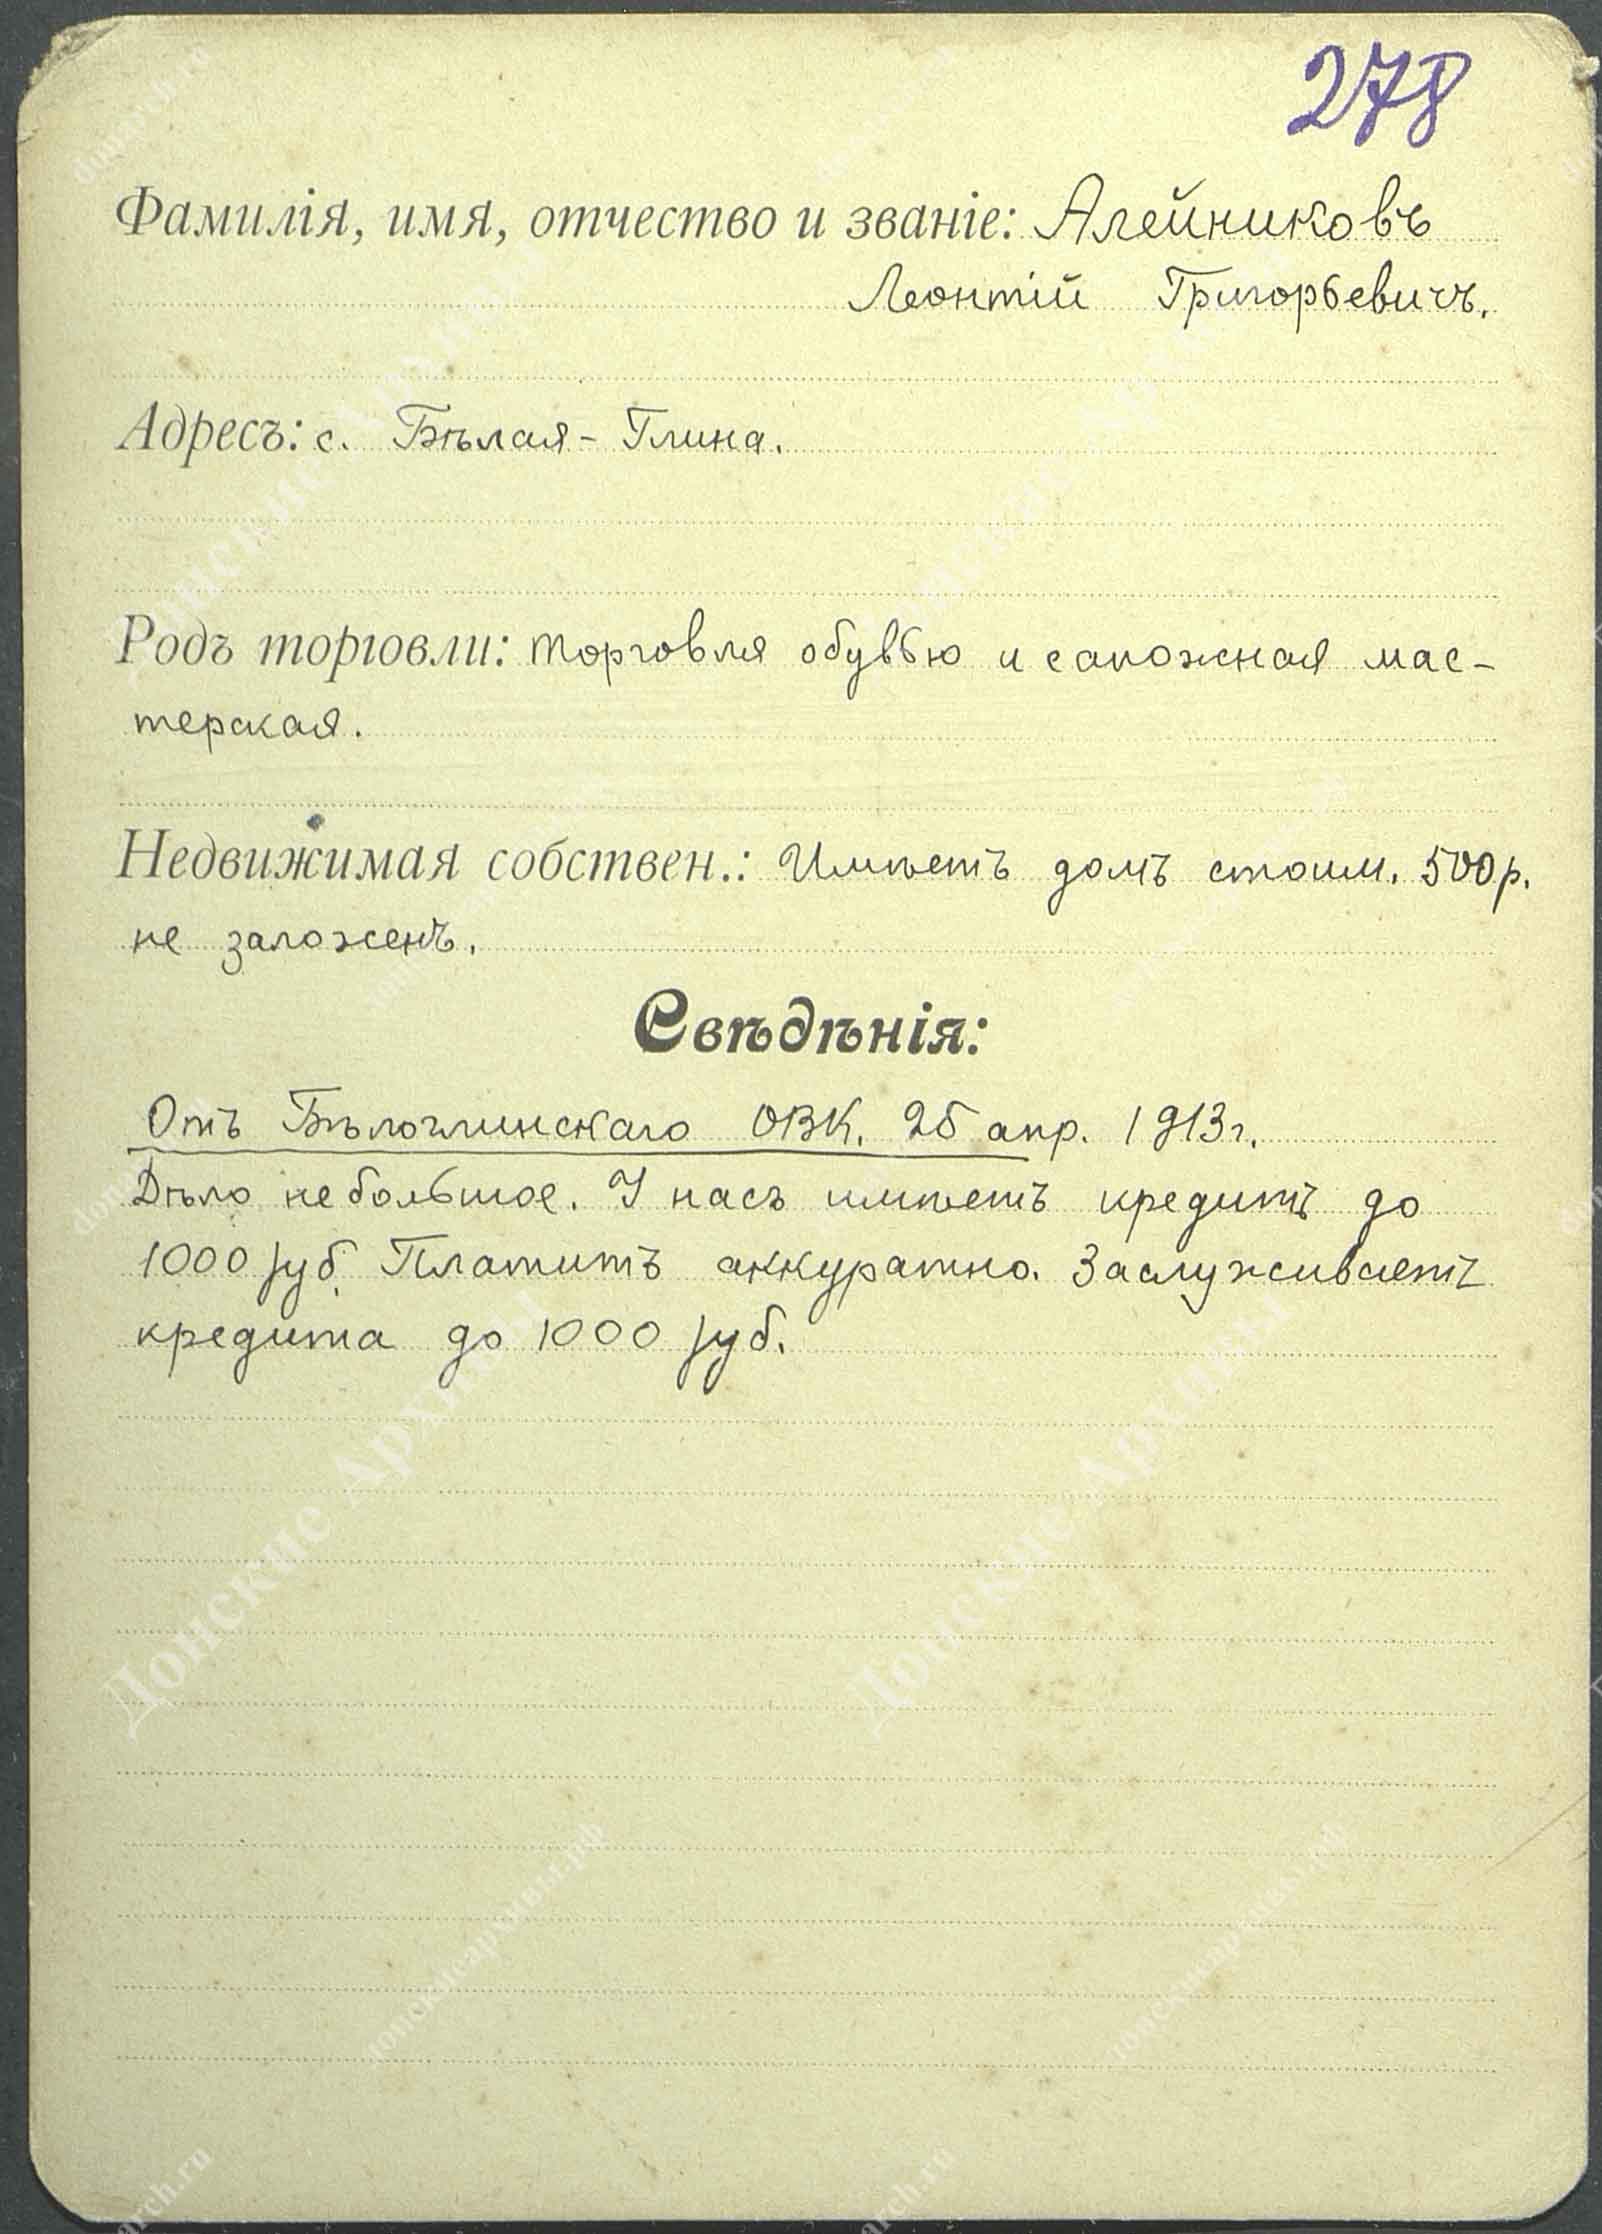 278
Фамилія, имя, отчество и званіе: Алейниковъ
Леонтій Григорьевичъ.
Адресъ: с. Бѣлая-Глина.
Родъ торговли: торговля обувью и сапожная мас-
терская.
Недвижимая собствен.: Имѣетъ домъ стоим. 500 р.
не заложенъ.
Свѣдѣнія:
Отъ Бѣлоглинскаго ОВК. 25 апр. 1913 г.
Дѣло небольшое. У насъ имѣетъ кредитъ до
1000 руб. Платитъ аккуратно. Заслуживаетъ
кредита до 1000 руб.